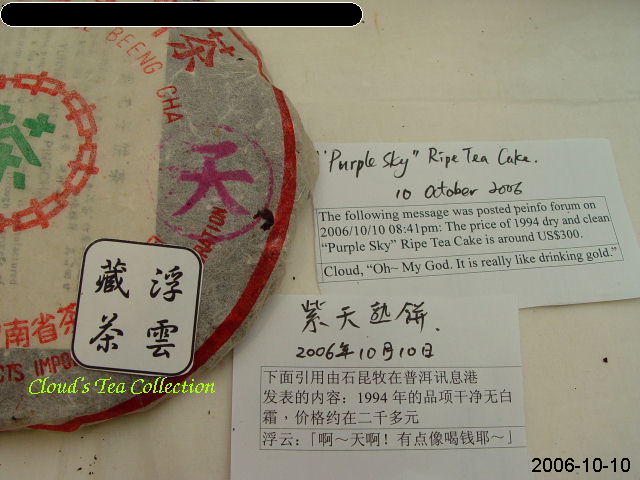 茶
BEENG CHA
茶
天
NATION
南省茶
CTS IMPO
藏 浮
茶 雲
Cloud's Tea Collection
"Purple Sky" Ripe Tea Cake.
10 October 2006
The following message was posted peinfo forum on
2006/10/10 08:41pm: The price of 1994 dry and clean
“Purple Sky” Ripe Tea Cake is around US$300.
Cloud, “Oh~ My God. It is really like drinking gold.”
紫天熟餅.
2006年10月10日
下面引用由石昆牧在普洱讯息港
发表的内容：1994 年的品项干净无白
霜，价格约在二千多元
浮云：「啊～天啊！有点像喝钱耶～」
2006-10-10